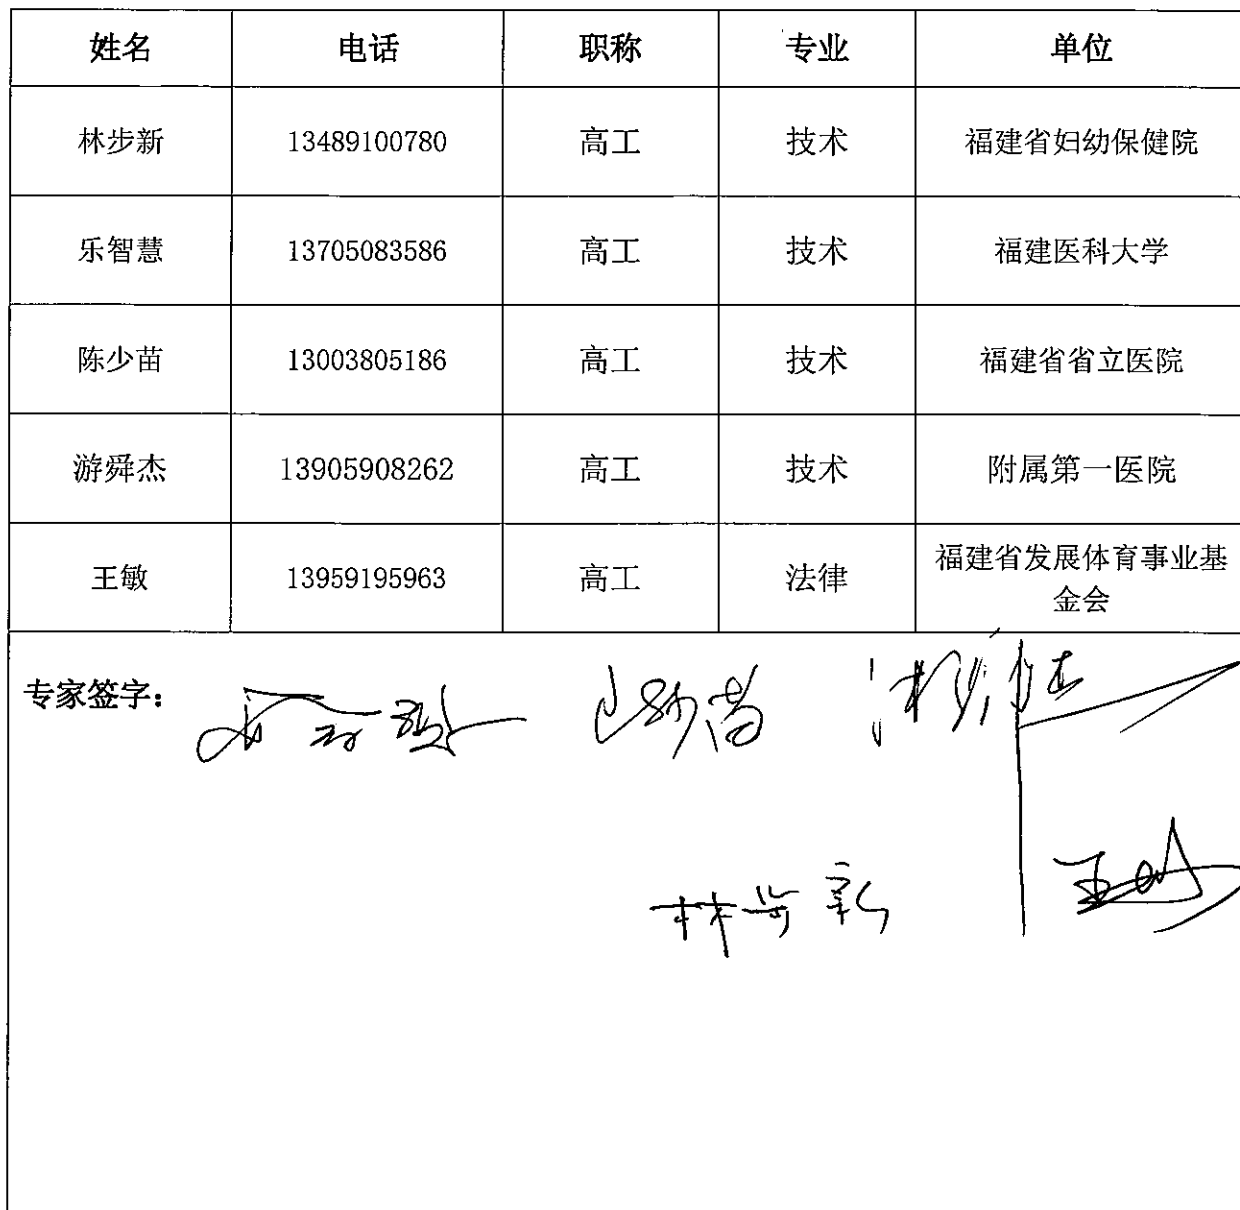 姓名 电话 职称 专业 单位
林步新 13489100780 高工 技术 福建省妇幼保健院
乐智慧 13705083586 高工 技术 福建医科大学
陈少苗 13003805186 高工 技术 福建省省立医院
游舜杰 13905908262 高工 技术 附属第一医院
王敏 13959195963 高工 法律 福建省发展体育事业基
金会
专家签字：
林步新